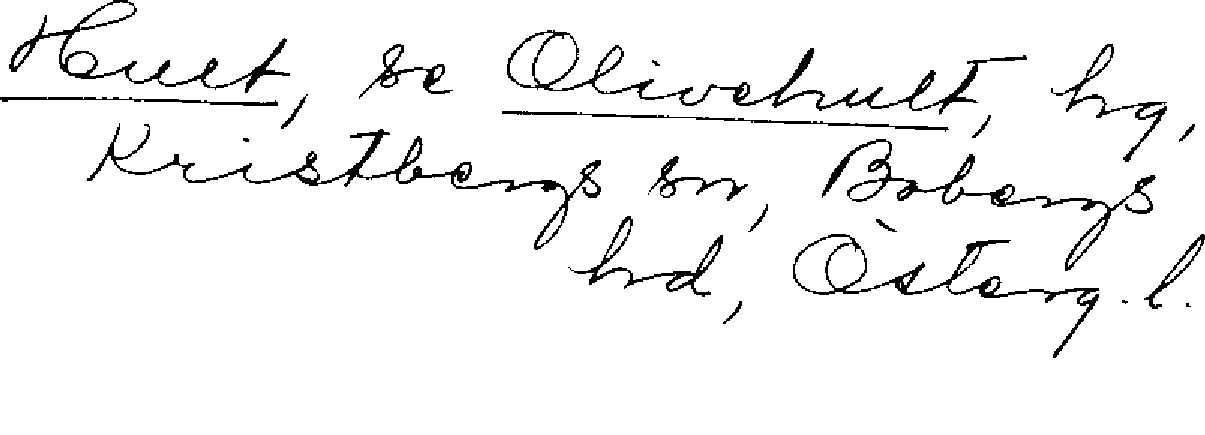 Hult, se Olivehult, hg,
Kristbergs sn, Bobergs
hrd, Österg. l.